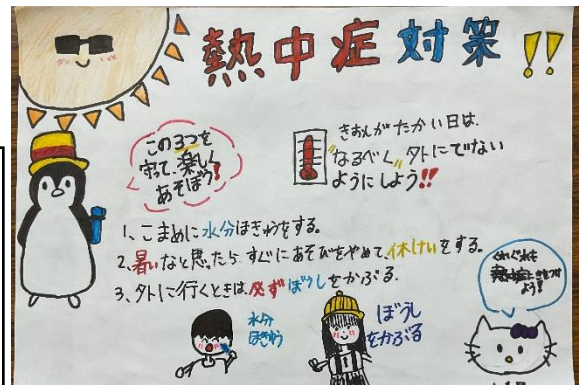 熱中症対策!!
この3つを
守って、楽しく
あそぼう!
きおんがたかい日は、
"なるべく"外にでない
ようにしよう!!
1、こまめに水分ほきゅうをする。
2、暑いなと思ったら、すぐにあそびをやめて、休けいをする。
3、外に行くときは、必ずぼうしをかぶる。
水分
ほきゅう
ぼうし
をかぶる
くれぐれも
よう!